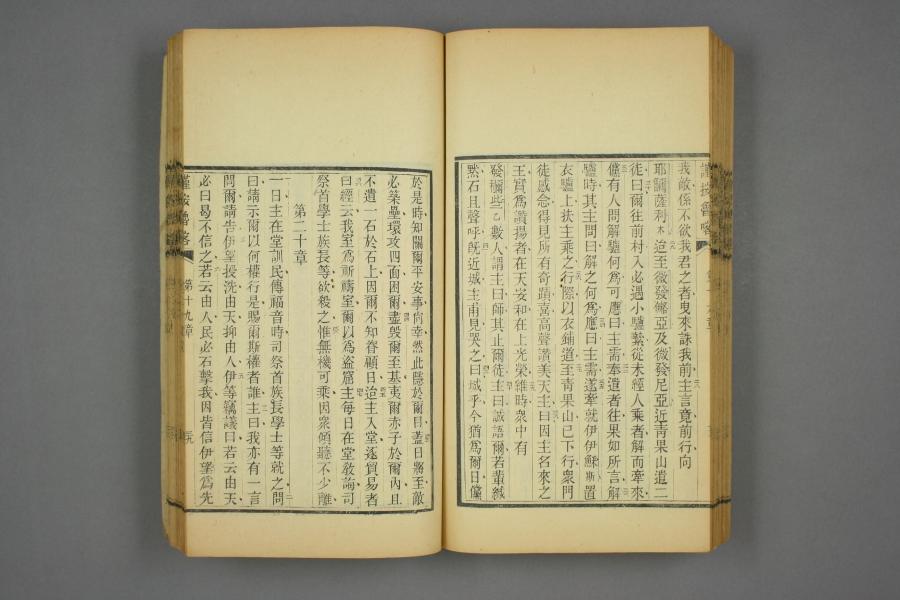 我敵係不欲我君之者曳來誅我前主言竟前行向
耶爾薩利木迨至微發儺亞及微發尼亞近靑果山遣二
徒曰爾往前村入必遇小驢縶從未經人乘者解而牽來
儻有人問解驢何爲可應曰主需奉遣者往果如所言解
驢時其主問曰解之何爲應曰主需遂牽就伊伊穌斯置
衣驢上扶主乘之行際以衣鋪道至靑果山已下行衆門
徒感念得見所有奇蹟喜高聲讚美天主曰因主名來之
王實爲讚揚者在天安和在上光榮維時衆中有
發爾些乙數人謂主曰師其止爾徒主曰誠語爾若輩緘
默石且聲呼旣近城主甫見哭之曰城乎今猶爲爾日儻
於是時知關爾平安事尙幸然此隱於爾目蓋日將至敵
必築壘環攻四面困爾盡毀爾至基夷爾赤子於爾內且
不遺一石於石上因爾不知眷顧日迨主入堂逐貿易者
曰經云我室爲祈禱室爾以爲盜窟主每日在堂敎誨司
祭首學士族長等欲殺之惟無機可乘因衆傾聽不少離
第二十章
一日主在堂訓民傳福音時司祭首族長學士等就之問
曰請示爾以何權行是賜爾斯權者誰主曰我亦有一言
問爾請吿伊望授洗由天抑由人伊等竊議曰若云由天
必曰曷不信之若云由人民必石擊我因皆信伊望爲先
第十九章